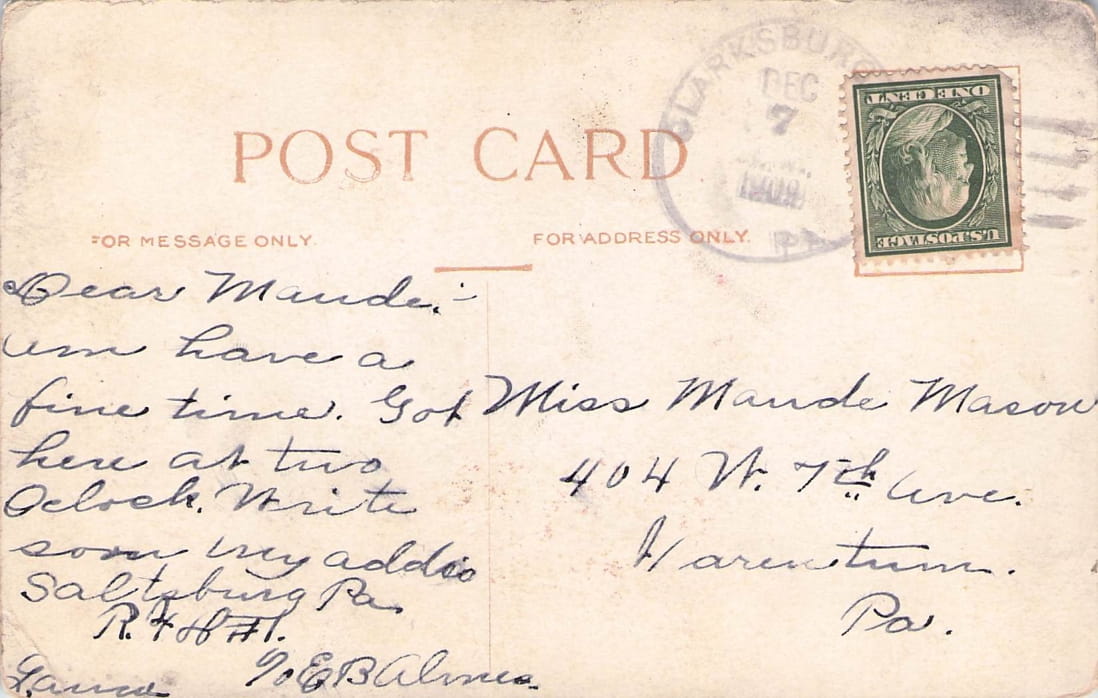 POST CARD
FOR MESSAGE ONLY.
FOR ADDRESS ONLY.
CLARKSBURG
DEC
7
1909
PA
ONE CENT
U.S. POSTAGE
Dear Maude:-
am have a
fine time. Got
here at two
Oclock. Write
soon my address
Saltsburg Pa.
R.F.D #1.
c/o E B Almes
Miss Maude Mason
404 W. 7th Ave.
Tarentum.
Pa.